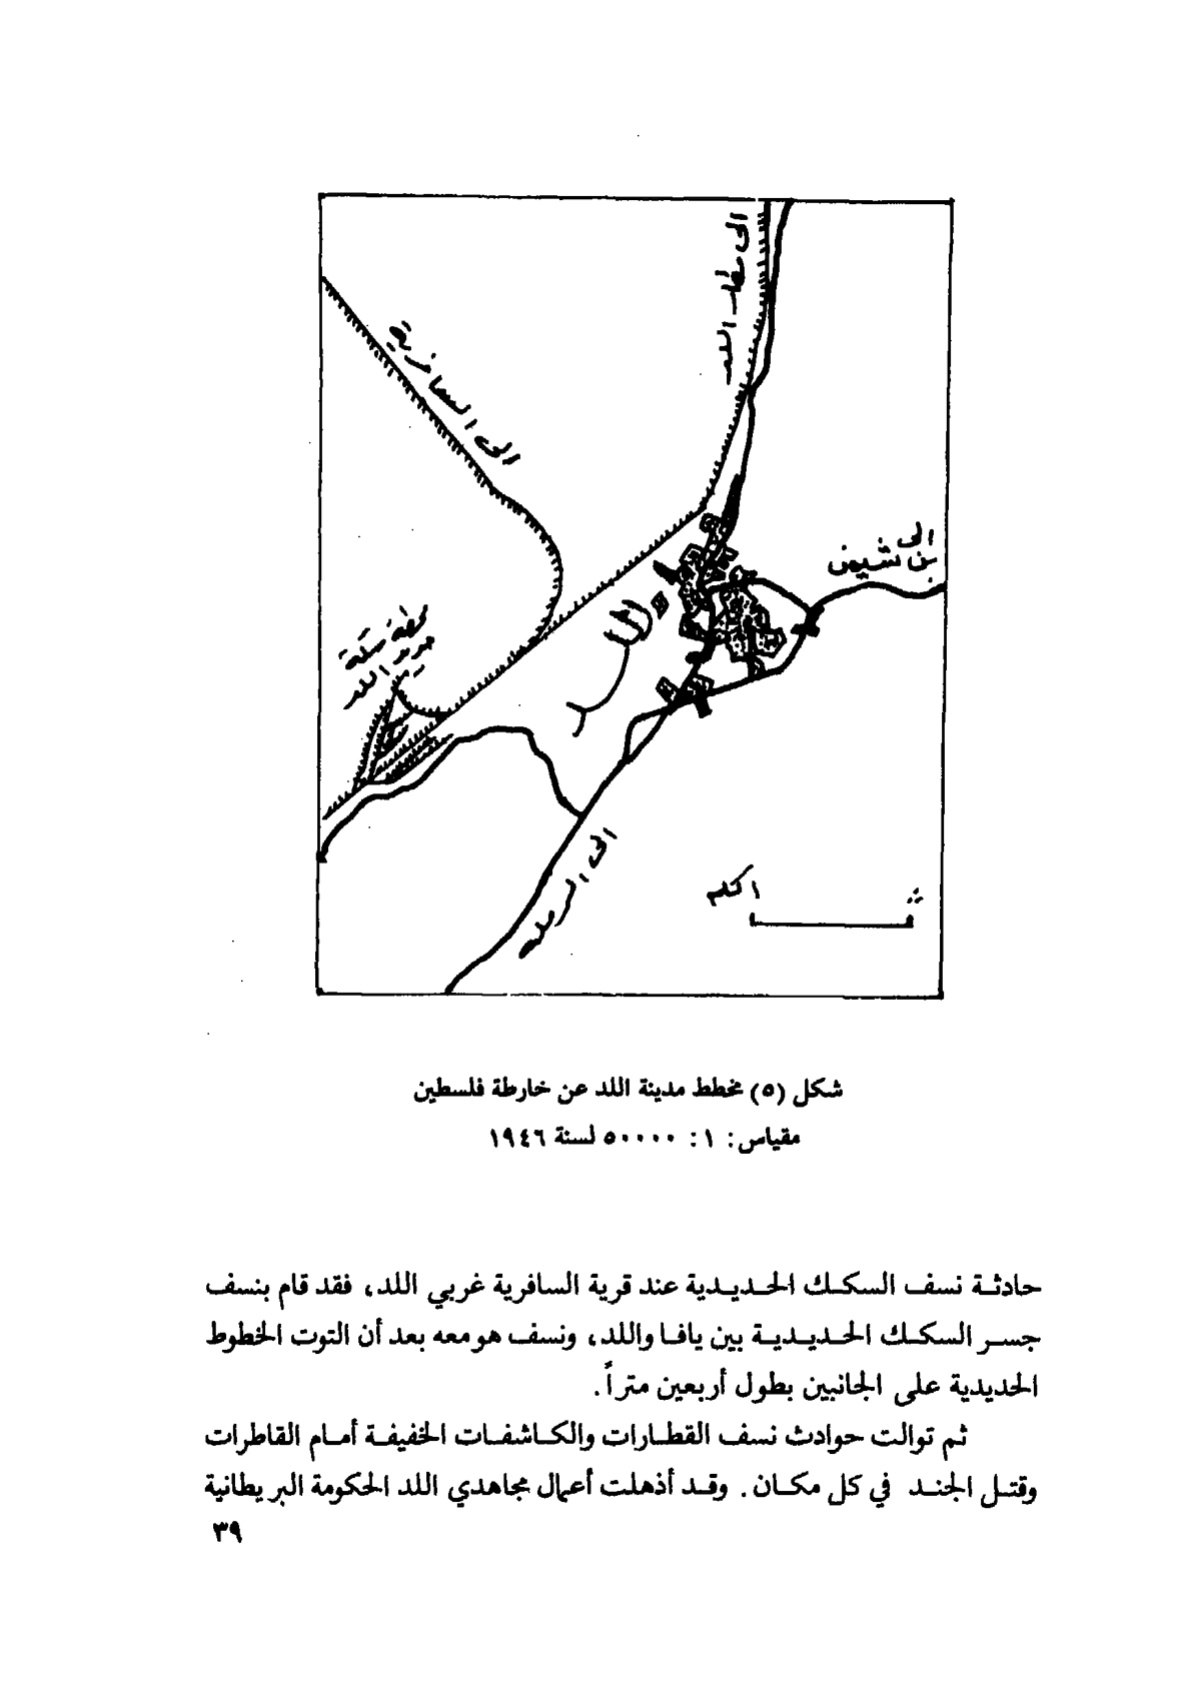 الى مطار اللد
الى السافرية
الى
بن شيمن
محطة سكة
حديد اللد
اللد
الى الرملة
١ كلم
شكل (٥) مخطط مدينة اللد عن خارطة فلسطين
مقياس: ١: ٥٠٠٠٠ لسنة ١٩٤٦
حادثة نسف السكك الحديدية عند قرية السافرية غربي اللد، فقد قام بنسف
جسر السكك الحديدية بين يافا واللد، ونسف هو معه بعد أن التوت الخطوط
الحديدية على الجانبين بطول أربعين متراً.
ثم توالت حوادث نسف القطارات والكاشفات الخفيفة أمام القاطرات
وقتل الجند في كل مكان. وقد أذهلت أعمال مجاهدي اللد الحكومة البريطانية
٣٩